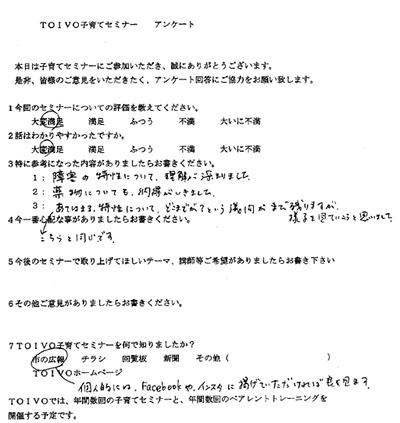 TOIVO子育てセミナー　アンケート
本日は子育てセミナーにご参加いただき、誠にありがとうございます。
是非、皆様のご意見をいただきたく、アンケート回答にご協力をお願い致します。
1今回のセミナーについての評価を教えてください。
大変満足　満足　ふつう　不満　大いに不満
2話はわかりやすかったですか。
大変満足　満足　ふつう　不満　大いに不満
3特に参考になった内容がありましたらお書きください。
1：障害の特性について、理解が深まりました。
2：薬物についても、納得がいきました。
3：あてはまる特性について、どこまでが？という疑問がまだ残りますが、
様子を見ていこうと思いました。
4今一番心配な事がありましたらお書きください。
こちらと同じです。
5今後のセミナーで取り上げてほしいテーマ、講師等ご希望がありましたらお書き下さい
6その他ご意見がありましたらお書きください。
7TOIVO子育てセミナーを何で知りましたか？
市の広報　チラシ　回覧板　新聞　その他（　）
TOIVOホームページ
個人的には、Facebookや、インスタに掲げていただければ
TOIVOでは、年間数回の子育てセミナーと、年間数回のペアレントトレーニングを
開催する予定です。